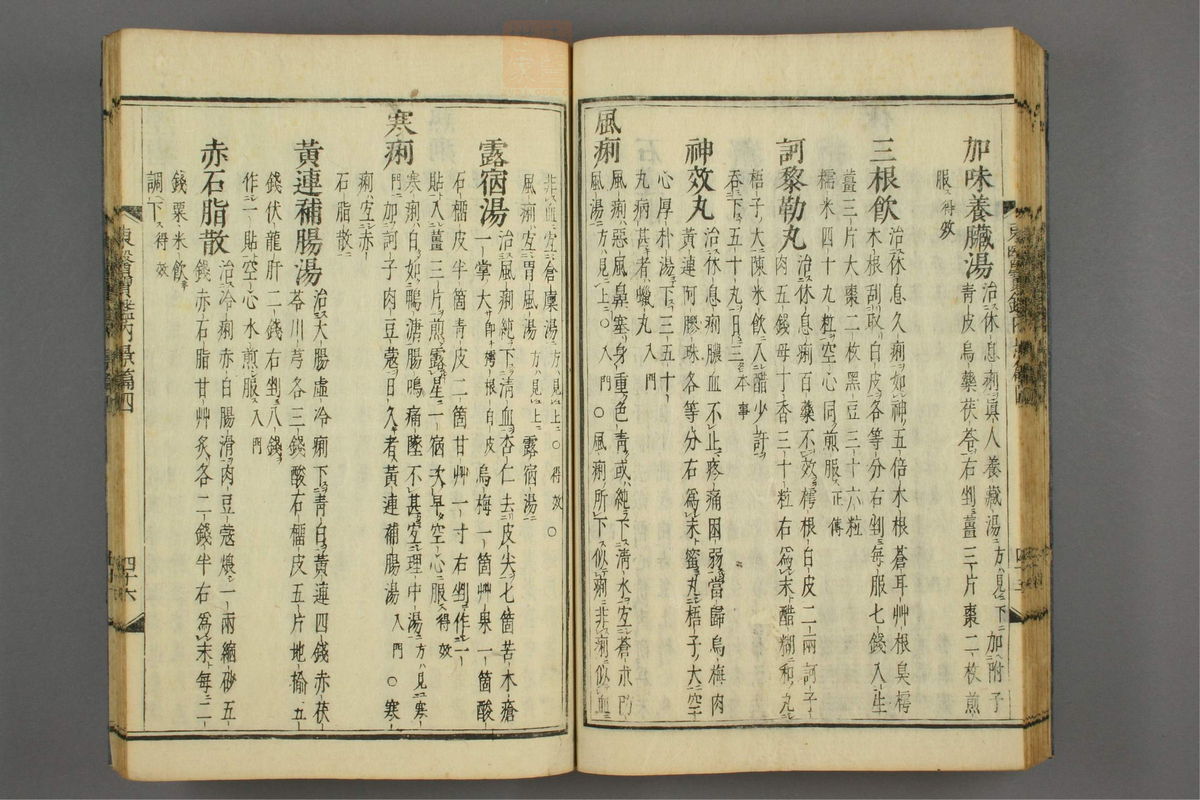 加味養臟湯 治休息痢眞人養臟湯方見下加附子
青皮烏藥茯苓右剉薑三片棗二枚煎
服得效
三根飮 治休息久痢如神五倍木根蒼耳艸根臭樗
木根刮取白皮各等分右剉每服七錢入生
薑三片大棗二枚黑豆三十六粒
糯米四十九粒空心同煎服正傳
訶黎勒丸 治休息痢百藥不效樗根白皮二兩訶子
肉五錢母丁香三十粒右爲末醋糊和丸
梧子大陳米飮入醋少許
吞下五十丸日三本事
神效丸 治休息痢膿血不止疼痛困弱當歸烏梅肉
黃連阿膠珠各等分右爲末蜜丸梧子大空
心厚朴湯下三五十
丸病甚者蠟丸入門
風痢 風痢惡風鼻塞身重色靑或純下淸水宜蒼朮防
風湯方見上○入門○風痢所下似痢非痢似血
非血宜倉廩湯方見上○得效○
風痢宜胃風湯方見上露宿湯
露宿湯 治風痢純下淸血杏仁去皮尖七箇苦木瘡
一掌大卽樗根白皮烏梅一箇艸果一箇酸
石榴皮半箇靑皮二箇甘艸一寸右剉作一
貼入薑三片煎露星一宿次早空心服得效
寒痢 寒痢白如鴨溏腸鳴痛墜不甚宜理中湯方見寒
門加訶子肉豆蔻日久者黃連補腸湯入門○寒
痢宜赤
石脂散
黃連補腸湯 治大腸虛冷痢下靑白黃連四錢赤茯
苓川芎各三錢酸石榴皮五片地楡五
錢伏龍肝二錢右剉八錢
作一貼空心水煎服入門
赤石脂散 治冷痢赤白腸滑肉豆蔻煨一兩縮砂五
錢赤石脂甘艸灸各二錢半右爲末每二
錢粟米飮
調下得效
東醫寶鑑內景篇四
四十六